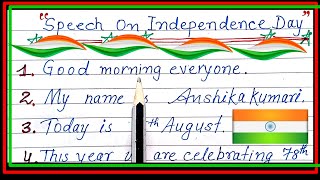 "Speech On Independence Day"
1. Good morning everyone.
2. My name is Anshika kumari.
3. Today is th August.
4. This year are celebrating 78th